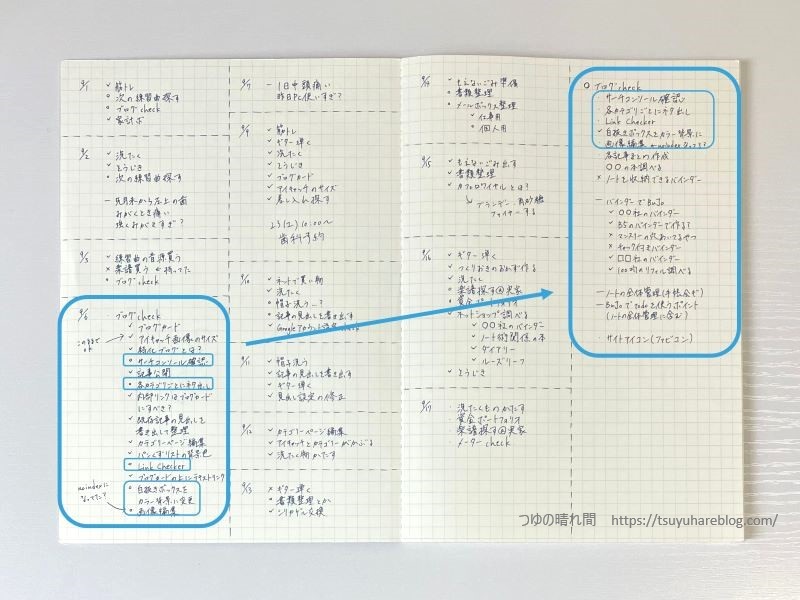 9/1
✓ 筋トレ
○ 次の練習曲探す
○ ブログcheck
✓ 家計ボ
9/2
✓ 洗たく
✓ そうじき
○ 次の練習曲探す
― 先月末から左上の歯
みがくとき痛い
強くみがきすぎ?
9/5
✓ 練習曲の音源買う
× 楽譜買う ← 持ってた
○ ブログcheck
9/6
ブログcheck
✓ ブログカード
このままでok
✓ アイキャッチ画像のサイズ
✓ 特化ブログとは?
○ サーチコンソール確認
✓ 記事公開
○ 各カテゴリごとにネタ出し
✓ 内部リンクはブログカード
にすべき?
✓ 既存記事の見出しを
書き出して整理
✓ カテゴリーページ編集
✓ パンくずリストの背景色
○ Link Checker
✓ ブログカードの上にテキストリンク
noindexに
なってた?
○ 目抜きボックスを
カラー背景に変更
○ 画像編集
9/7
― 1日中頭痛い
昨日PC使いすぎ?
9/9
✓ 筋トレ
✓ ギター弾く
✓ 洗たく
✓ そうじき
✓ ブログカード
✓ アイキャッチのサイズ
✓ 差し入れ探す
10:00〜
歯科予約
9/10
✓ ネットで買い物
✓ 洗たく
○ 帽子洗う…?
○ 記事の見出しを書き出す
9/11
✓ 帽子洗う
✓ 記事の見出しを書き出す
✓ ギター弾く
✓ 見出し設定の修正
9/12
✓ カテゴリーページ編集
✓ アイキャッチとカテゴリーがかぶる
✓ 洗たく物かたす
9/13
× ギター弾く
○ 書類整理とか
✓ シリカゲル交換
9/14
✓ もえないごみ準備
○ 書類整理
✓ メールボックス整理
✓ 仕事用
○ 個人用
9/15
✓ もえないごみ出す
✓ 書類整理
✓ カフェロワイヤルとは?
ブランデー、角砂糖
ファイヤーする
9/16
✓ ギター弾く
✓ つくりおきのおかず作る
✓ 洗たく
○ 楽譜探す@実家
○ 賞金ポートフォリオ
✓ ネットショップ調べる
✓ ○○社のバインダー
✓ ノート術関係の本
✓ ダイアリー
✓ ルーズリーフ
✓ そうじき
9/17
・ 洗たくものかたす
賞金ポートフォリオ
楽譜探す@実家
・ メーターcheck
○ ブログcheck
・ サーチコンソール確認
・ 各カテゴリごとにネタ出し
・ Link Checker
✓ 目抜きボックスをカラー背景に
画像編集 ← noindexなってて?
・ 各記事まとめ作成
・ ○○の本調べる
× ノートを収納できるバインダー
― バインダーでBuJo
✓ ○○社のバインダー
✓ B5のバインダーで作る?
× マンスリーの穴あいてるやつ
× チャック付きバインダー
✓ □□社のバインダー
✓ 100均のリフィル調べる
― ノートの全体管理(手帳会ぎ)
― BuJoでtodoを使うポイント
(ノートの全体管理に含む)
・ サイトアイコン(ファビコン)
つゆの晴れ間 https://tsuyuhareblog.com/